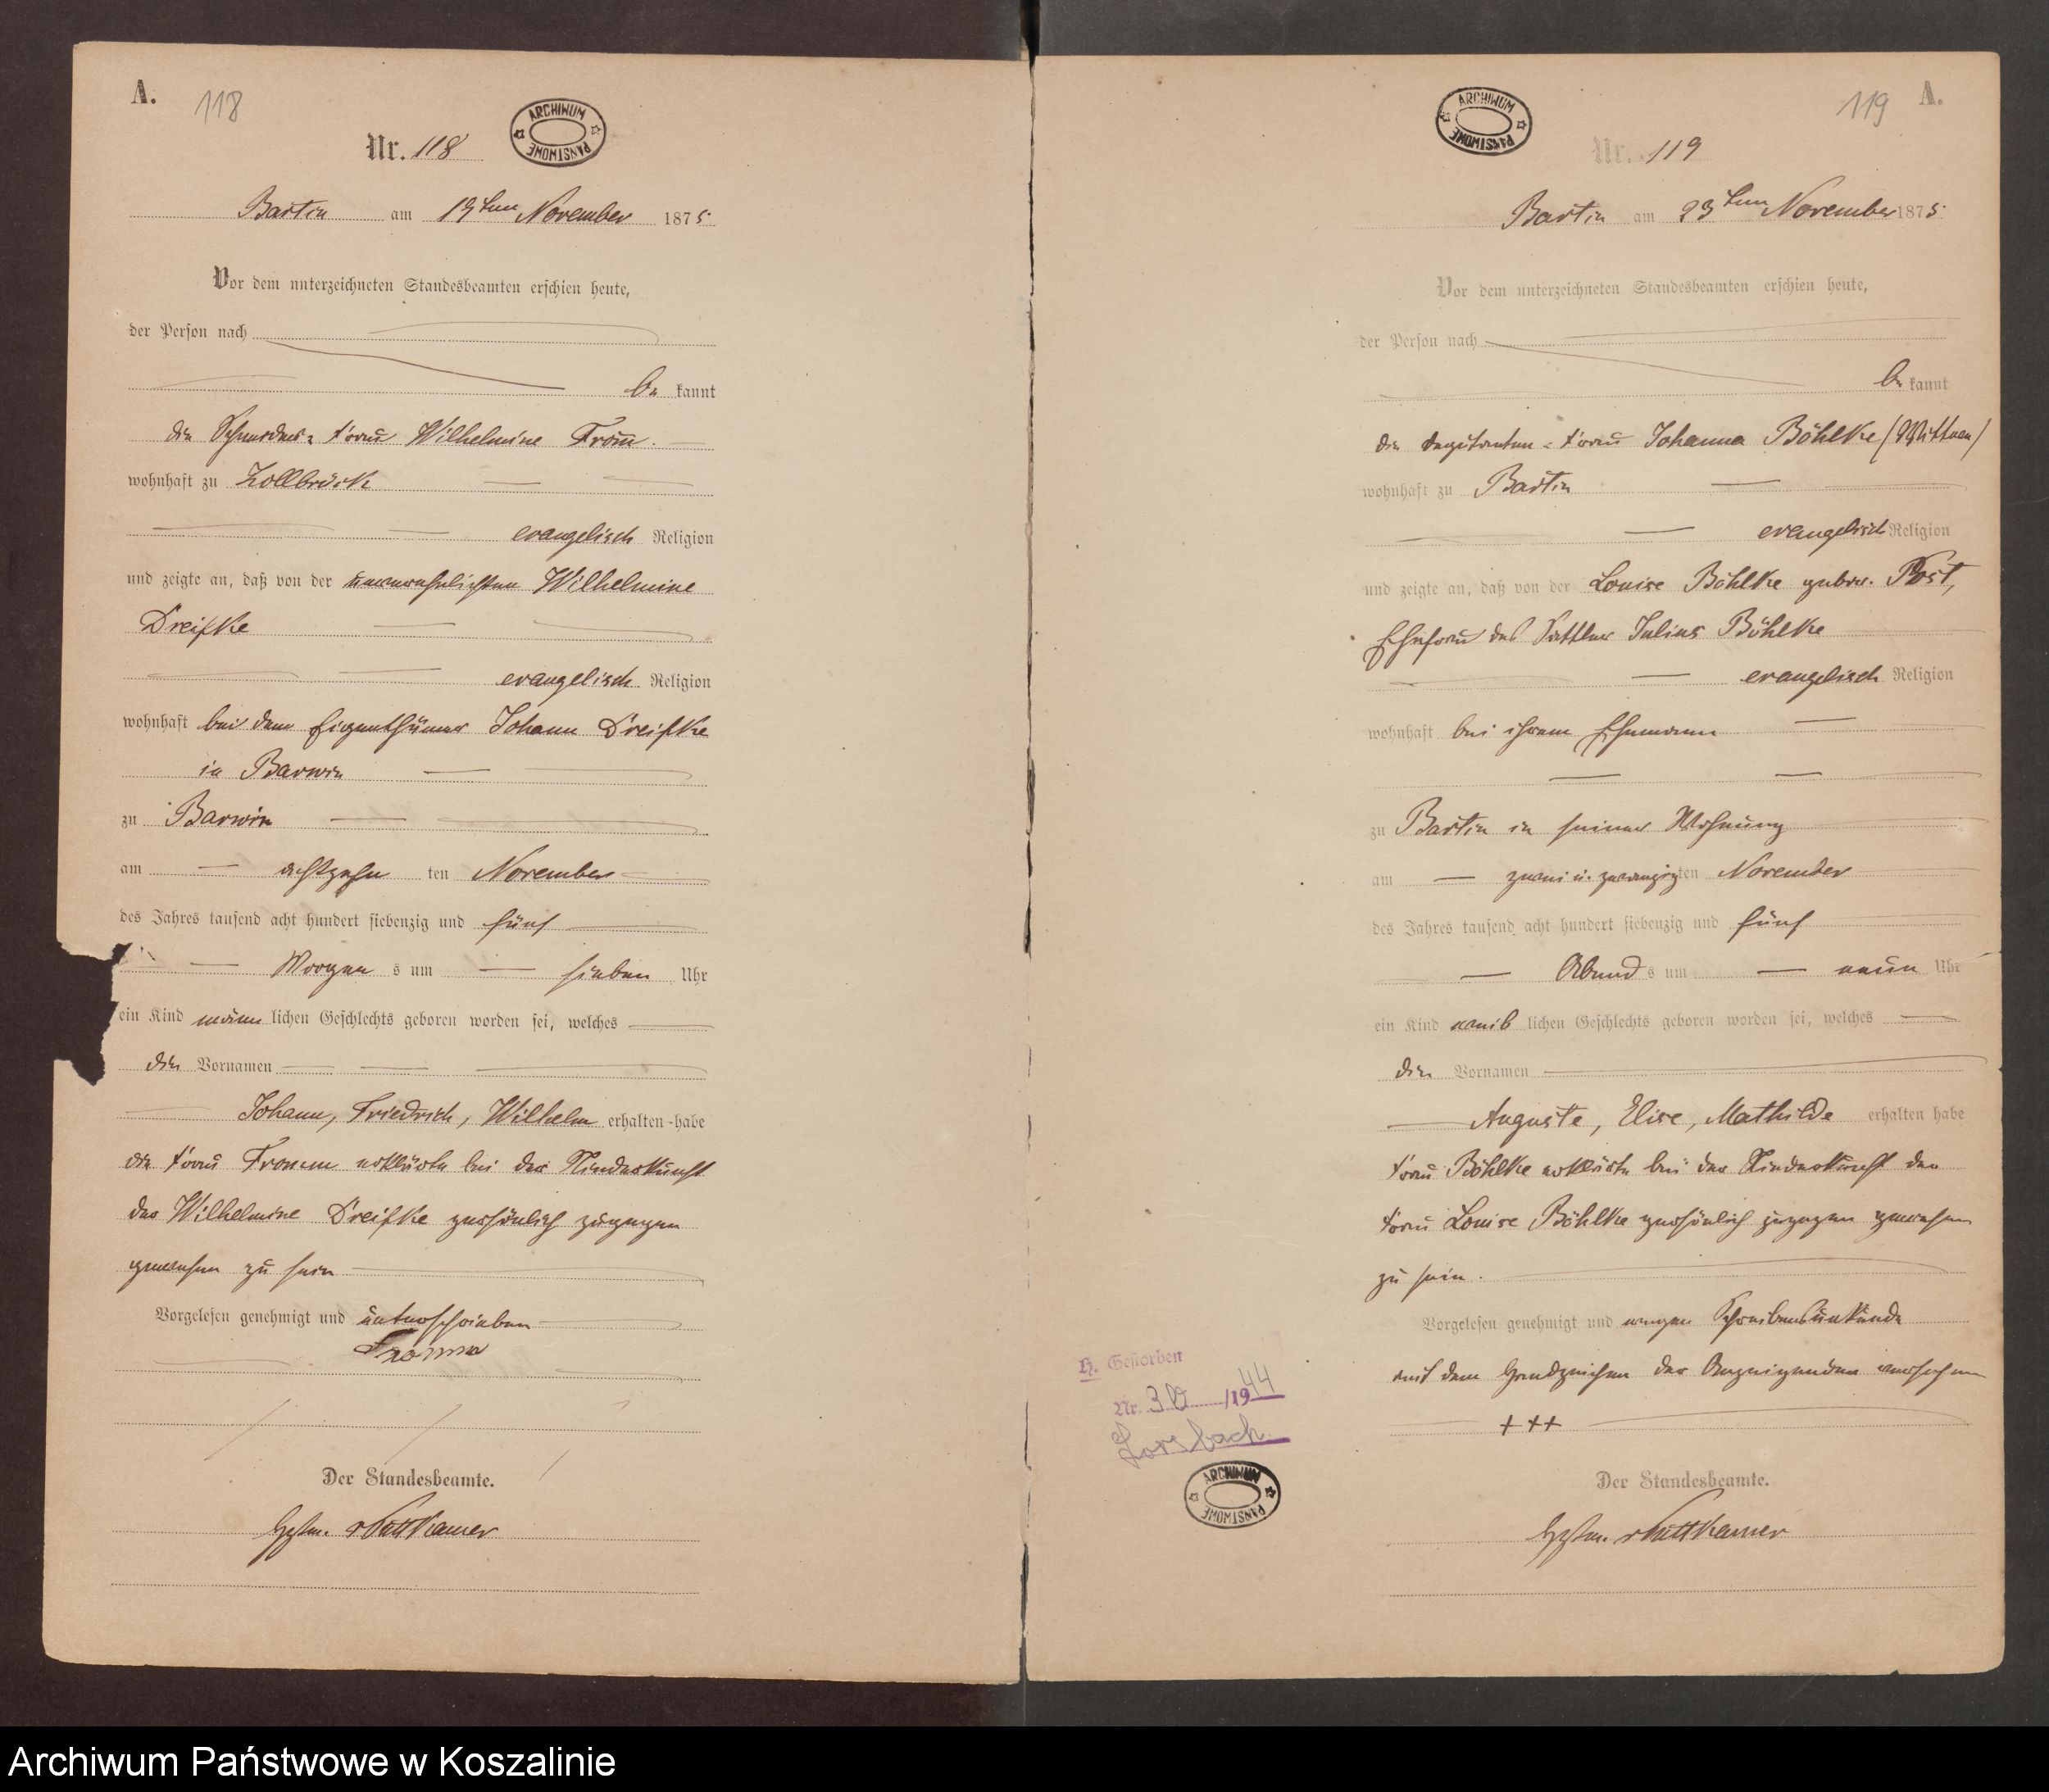 A.
118
ARCHIWUM PAŃSTWOWE
Nr. 118
Bartin am 19ten November 1875
Vor dem unterzeichneten Standesbeamten erschien heute,
der Person nach
be kannt
die Schneider-Frau Wilhelmine From̅.
wohnhaft zu Zollbrück
evangelisch Religion
und zeigte an, daß von der unverehelichten Wilhelmine
Dreifke
evangelisch Religion
wohnhaft bei dem Eigenthümer Johann Dreifke
in Barwin
zu Barwin
am achtzehn ten November
des Jahres tausend acht hundert siebenzig und fünf
Morgen s um sieben Uhr
ein Kind männ lichen Geschlechts geboren worden sei, welches
die Vornamen
Johann, Friedrich, Wilhelm erhalten habe
die Frau Fromm erklärte bei der Niederkunft
der Wilhelmine Dreifke persönlich zugegen
gewesen zu sein
Vorgelesen genehmigt und unterschrieben
Fromm
Der Standesbeamte.
Hptm. v Puttkamer
119
A.
ARCHIWUM PAŃSTWOWE
Nr. 119
Bartin am 23ten November 1875
Vor dem unterzeichneten Standesbeamten erschien heute,
der Person nach
be kannt
die Frau Johanna Böhlke (Wittwe)
wohnhaft zu Bartin
evangelisch Religion
und zeigte an, daß von der Louise Böhlke gebor. Post,
Ehefrau des Sattler Julius Böhlke
evangelisch Religion
wohnhaft bei ihrem Ehemann
zu Bartin in seiner Wohnung
am zwei u. zwanzig ten November
des Jahres tausend acht hundert siebenzig und fünf
Abend s um neun Uhr
ein Kind weib lichen Geschlechts geboren worden sei, welches
die Vornamen
Auguste, Elise, Mathilde erhalten habe
Frau Böhlke erklärte bei der Niederkunft der
Frau Louise Böhlke persönlich zugegen gewesen
zu sein.
Vorgelesen genehmigt und wegen Schreibensunkunde
mit dem Handzeichen der Anzeigenden versehen
+++
Der Standesbeamte.
Hptm. v Puttkamer
H. Gestorben
Nr. 30 /1944
Lorsbach
ARCHIWUM PAŃSTWOWE
Archiwum Państwowe w Koszalinie